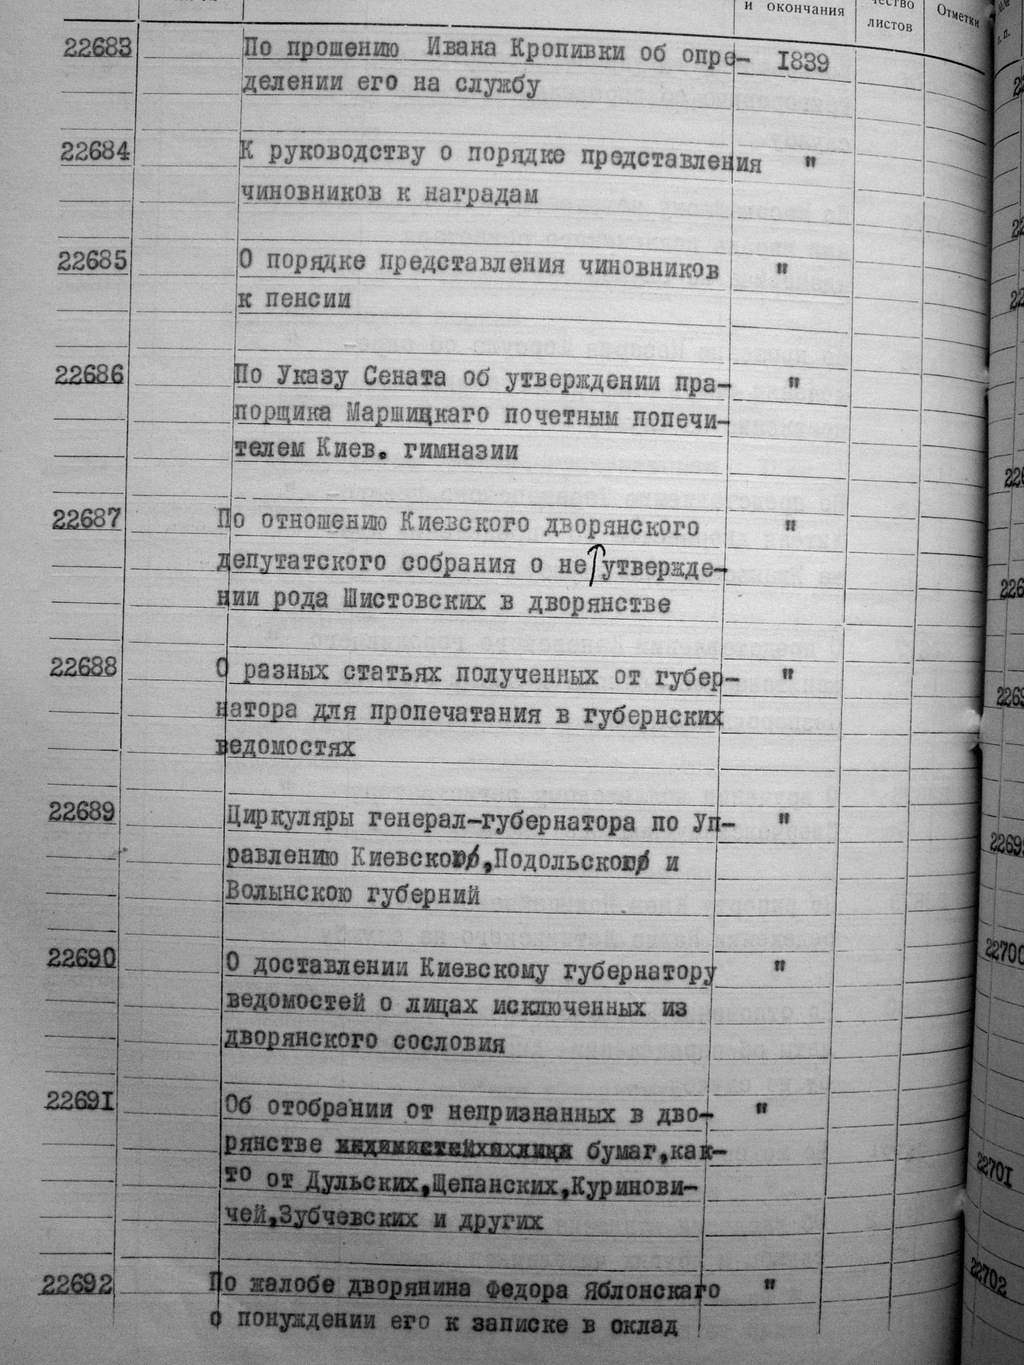 и окончания
чество
листов
Отметки
22683 По прошению Ивана Кропивки об опре- 1839
делении его на службу
22684 К руководству о порядке представления "
чиновников к наградам
22685 О порядке представления чиновников "
к пенсии
22686 По Указу Сената об утверждении пра- "
порщика Маршицкаго почетным попечи-
телем Киев. гимназии
22687 По отношению Киевского дворянского "
депутатского собрания о не утвержде-
нии рода Шистовских в дворянстве
22688 О разных статьях полученных от губер- "
натора для пропечатания в губернских
ведомостях
22689 Циркуляры генерал-губернатора по Уп- "
равлению Киевскою, Подольскою и
Волынскою губерний
22690 О доставлении Киевскому губернатору "
ведомостей о лицах исключенных из
дворянского сословия
22691 Об отобрании от непризнанных в дво- "
рянстве бумаг,как-
то от Дульских,Щепанских,Куринови-
чей,Зубчевских и других
22692 По жалобе дворянина Федора Яблонскаго "
о понуждении его к записке в оклад
22700
22701
22702